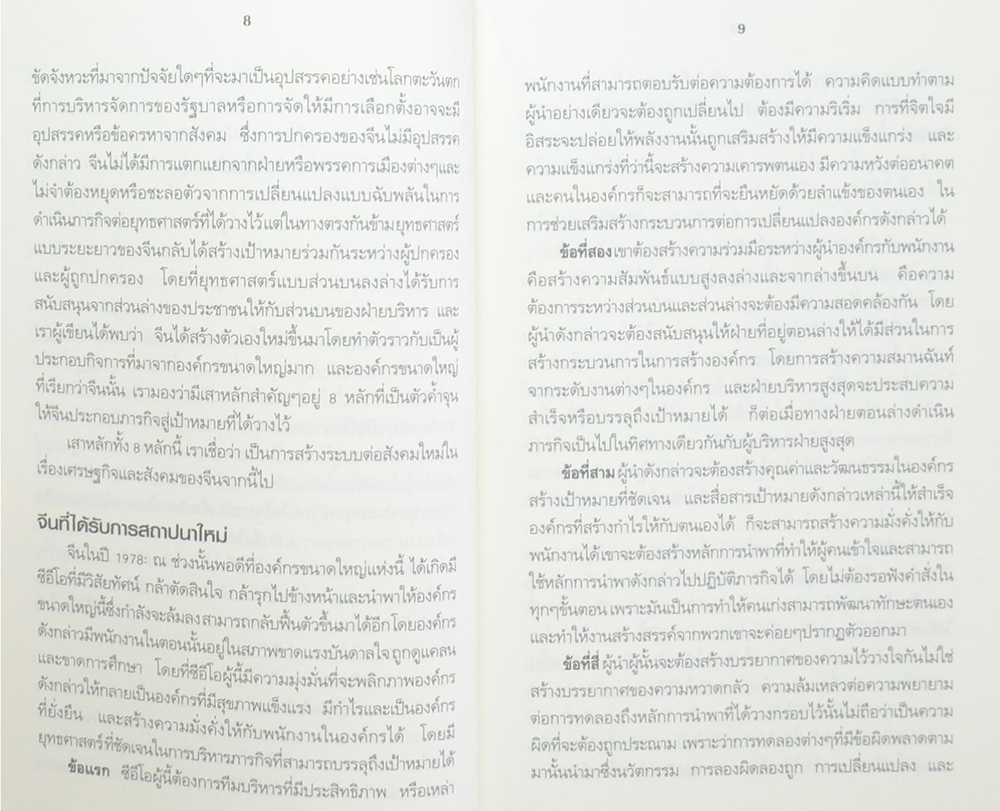 8
ขัดจังหวะที่มาจากปัจจัยใดๆที่จะมาเป็นอุปสรรคอย่างเช่นโลกตะวันตก
ที่การบริหารจัดการของรัฐบาลหรือการจัดให้มีการเลือกตั้งอาจจะมี
อุปสรรคหรือข้อครหาจากสังคม ซึ่งการปกครองของจีนไม่มีอุปสรรค
ดังกล่าว จีนไม่ได้มีการแตกแยกจากฝ่ายหรือพรรคการเมืองต่างๆและ
ไม่จำต้องหยุดหรือชะลอตัวจากการเปลี่ยนแปลงแบบฉับพลันในการ
ดำเนินภารกิจต่อยุทธศาสตร์ที่ได้วางไว้แต่ในทางตรงกันข้ามยุทธศาสตร์
แบบระยะยาวของจีนกลับได้สร้างเป้าหมายร่วมกันระหว่างผู้ปกครอง
และผู้ถูกปกครอง โดยที่ยุทธศาสตร์แบบส่วนบนลงล่างได้รับการ
สนับสนุนจากส่วนล่างของประชาชนให้กับส่วนบนของฝ่ายบริหาร และ
เราผู้เขียนได้พบว่า จีนได้สร้างตัวเองใหม่ขึ้นมาโดยทำตัวราวกับเป็นผู้
ประกอบกิจการที่มาจากองค์กรขนาดใหญ่มาก และองค์กรขนาดใหญ่
ที่เรียกว่าจีนนั้น เรามองว่ามีเสาหลักสำคัญๆอยู่ 8 หลักที่เป็นตัวค้ำจุน
ให้จีนประกอบภารกิจสู่เป้าหมายที่ได้วางไว้
เสาหลักทั้ง 8 หลักนี้ เราเชื่อว่า เป็นการสร้างระบบต่อสังคมใหม่ใน
เรื่องเศรษฐกิจและสังคมของจีนจากนี้ไป
จีนที่ได้รับการสถาปนาใหม่
จีนในปี 1978: ณ ช่วงนั้นพอดีที่องค์กรขนาดใหญ่แห่งนี้ ได้เกิดมี
ซีอีโอที่มีวิสัยทัศน์ กล้าตัดสินใจ กล้ารุกไปข้างหน้าและนำพาให้องค์กร
ขนาดใหญ่นี้ซึ่งกำลังจะล้มลงสามารถกลับฟื้นตัวขึ้นมาได้อีกโดยองค์กร
ดังกล่าวมีพนักงานในตอนนั้นอยู่ในสภาพขาดแรงบันดาลใจ ถูกดูแคลน
และขาดการศึกษา โดยที่ซีอีโอผู้นี้มีความมุ่งมั่นที่จะพลิกภาพองค์กร
ดังกล่าวให้กลายเป็นองค์กรที่มีสุขภาพแข็งแรง มีกำไรและเป็นองค์กร
ที่ยั่งยืน และสร้างความมั่งคั่งให้กับพนักงานในองค์กรได้ โดยมี
ยุทธศาสตร์ที่ชัดเจนในการบริหารภารกิจที่สามารถบรรลุถึงเป้าหมายได้
ข้อแรก ซีอีโอผู้นี้ต้องการทีมบริหารที่มีประสิทธิภาพ หรือเหล่า
9
พนักงานที่สามารถตอบรับต่อความต้องการได้ ความคิดแบบทำตาม
ผู้นำอย่างเดียวจะต้องถูกเปลี่ยนไป ต้องมีความริเริ่ม การที่จิตใจมี
อิสระจะปล่อยให้พลังงานนั้นถูกเสริมสร้างให้มีความแข็งแกร่ง และ
ความแข็งแกร่งที่ว่านี้จะสร้างความเคารพตนเอง มีความหวังต่ออนาคต
และคนในองค์กรก็จะสามารถที่จะยืนหยัดด้วยลำแข้งของตนเอง ใน
การช่วยเสริมสร้างกระบวนการต่อการเปลี่ยนแปลงองค์กรดังกล่าวได้
ข้อที่สองเขาต้องสร้างความร่วมมือระหว่างผู้นำองค์กรกับพนักงาน
คือสร้างความสัมพันธ์แบบสูงลงล่างและจากล่างขึ้นบน คือความ
ต้องการระหว่างส่วนบนและส่วนล่างจะต้องมีความสอดคล้องกัน โดย
ผู้นำดังกล่าวจะต้องสนับสนุนให้ฝ่ายที่อยู่ตอนล่างให้ได้มีส่วนในการ
สร้างกระบวนการในการสร้างองค์กร โดยการสร้างความสมานฉันท์
จากระดับงานต่างๆในองค์กร และฝ่ายบริหารสูงสุดจะประสบความ
สำเร็จหรือบรรลุถึงเป้าหมายได้ ก็ต่อเมื่อทางฝ่ายตอนล่างดำเนิน
ภารกิจเป็นไปในทิศทางเดียวกันกับผู้บริหารฝ่ายสูงสุด
ข้อที่สาม ผู้นำดังกล่าวจะต้องสร้างคุณค่าและวัฒนธรรมในองค์กร
สร้างเป้าหมายที่ชัดเจน และสื่อสารเป้าหมายดังกล่าวเหล่านี้ให้สำเร็จ
องค์กรที่สร้างกำไรให้กับตนเองได้ ก็จะสามารถสร้างความมั่งคั่งให้กับ
พนักงานได้เขาจะต้องสร้างหลักการนำพาที่ทำให้ผู้คนเข้าใจและสามารถ
ใช้หลักการนำพาดังกล่าวไปปฏิบัติภารกิจได้ โดยไม่ต้องรอฟังคำสั่งใน
ทุกๆขั้นตอน เพราะมันเป็นการทำให้คนเก่งสามารถพัฒนาทักษะตนเอง
และทำให้งานสร้างสรรค์จากพวกเขาจะค่อยๆปรากฏตัวออกมา
ข้อที่สี่ ผู้นำผู้นั้นจะต้องสร้างบรรยากาศของความไว้วางใจกันไม่ใช่
สร้างบรรยากาศของความหวาดกลัว ความล้มเหลวต่อความพยายาม
ต่อการทดลองถึงหลักการนำพาที่ได้วางกรอบไว้นั้นไม่ถือว่าเป็นความ
ผิดที่จะต้องถูกประณาม เพราะว่าการทดลองต่างๆที่มีข้อผิดพลาดตาม
มานั้นนำมาซึ่งนวัตกรรม การลองผิดลองถูก การเปลี่ยนแปลง และ